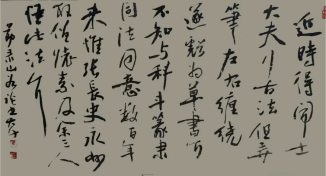 近時得
大夫古法但弄
筆左右纏繞
遂號为草書
不知與科斗篆隸
同法同意數百年
来惟張長史永州
僧懷素及余三人
悟此法
山谷论書